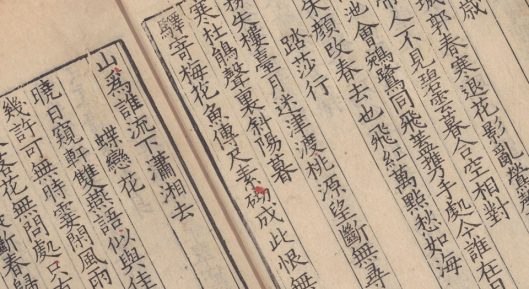 歲
城郭春寒退花影亂鶯
帶人不見碧雲暮合空相對
池會鵷鷺同飛蓋攜手處今誰在日
朱顏改春去也飛紅萬點愁如海
踏莎行
失樓臺月迷津渡桃源望斷無尋
寒杜鵑聲裏斜陽暮
驛寄梅花魚傳尺素砌成此恨無
山為誰流下瀟湘去
蝶戀花
曉日窺軒雙燕語似與佳
幾許可無時霎閒風雨
落花無問處只有
斷春歸